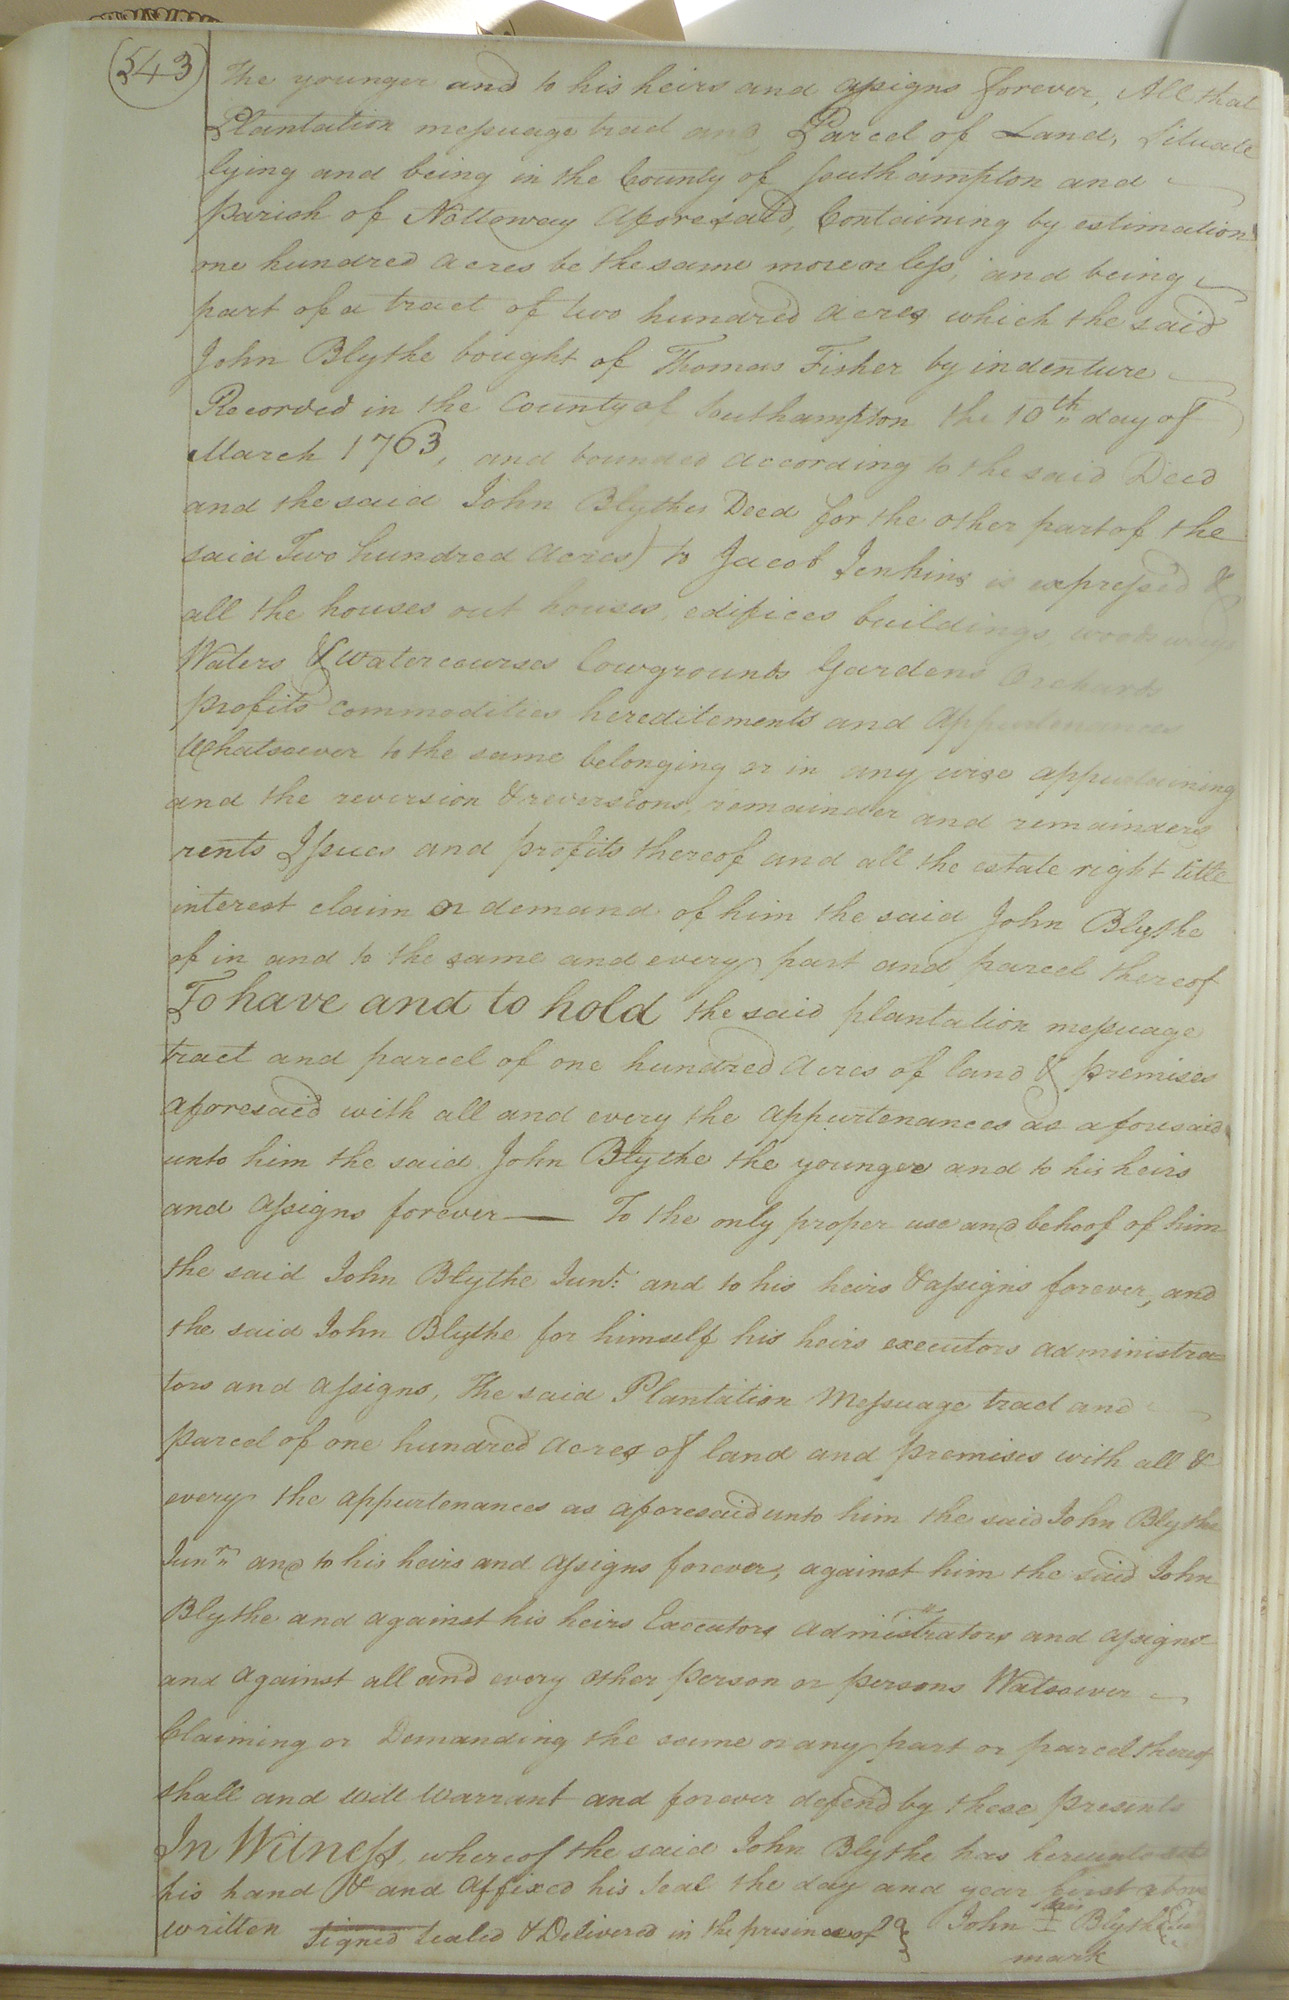 (543)
the younger and to his heirs and assigns forever, All that
Plantation messuage tract and Parcel of Land, Situate
lying and being in the County of Southampton and
parish of Nottoway aforesaid, Containing by estimation
one hundred acres be the same more or less, and being
part of a tract of two hundred acres which the said
John Blythe bought of Thomas Fisher by indenture
Recorded in the County of Southampton the 10th day of
March 1763, and bounded according to the said Deed
and the said John Blythes Deed for the other part of the
said Two hundred acres) to Jacob Jenkins is express'd &
all the houses out houses, edifices buildings, woods
Waters & watercourses lowgrounds Gardens Orchards
profits commodities hereditements and appurtenances
Whatsoever to the same belonging or in any wise appurtaining
and the reversion & reversions, remainder and remainders
rents Issues and profits thereof and all the estate right title
interest claim or demand of him the said John Blythe
of in and to the same and every part and parcel thereof
To have and to hold the said plantation messuage
tract and parcel of one hundred acres of land & premises
aforesaid with all and every the appurtenances as aforesaid
unto him the said John Blythe the younger and to his heirs
and assigns forever — To the only proper use and behoof of him
the said John Blythe Junr. and to his heirs & assigns forever, and
the said John Blythe for himself his heirs executors administra
tors and assigns, The said Plantation Messuage tract and
parcel of one hundred acres of land and premises with all &
every the appurtenances as aforesaid unto him the said John Blythe
Junr and to his heirs and assigns forever, against him the said John
Blythe and against his heirs Executors administrators and assigns
and against all and every other person or persons Watsoever
Claiming or Demanding the same or any part or parcel thereof
shall and will warrant and forever defend by these presents
In Witness, whereof the said John Blythe has hereunto set
his hand & and affixed his Seal the day and year first above
written signed sealed & Delivered in the presince of } John his I Blythe
mark